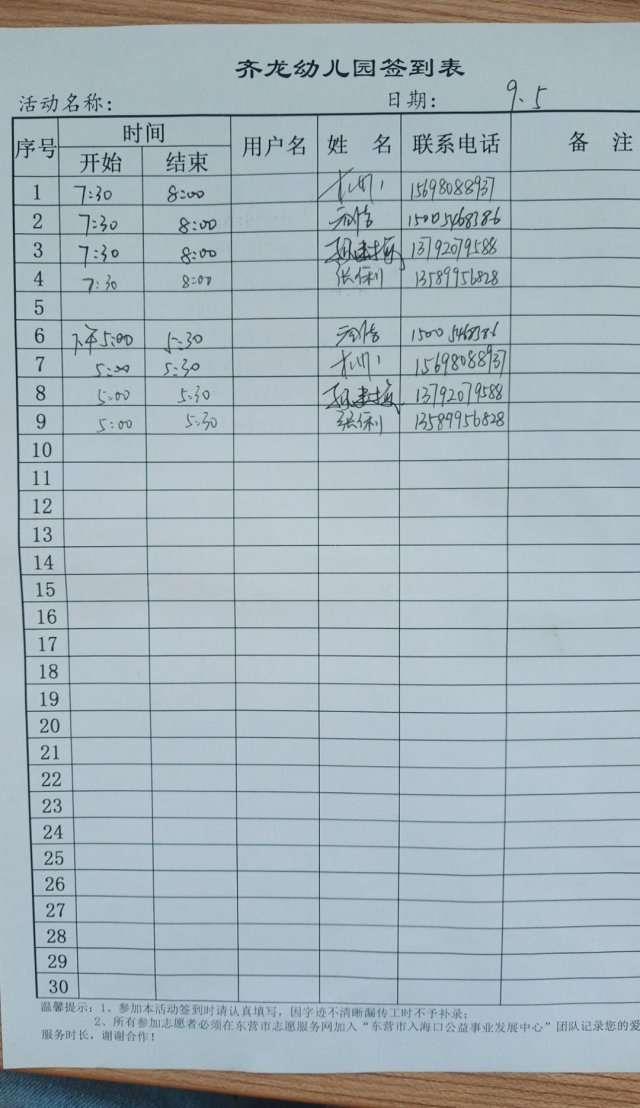 齐龙幼儿园签到表
活动名称: 日期: 9.5
序号 时间 用户名 姓 名 联系电话 备 注
开始 结束
1 7:30 8:00 15698088937
2 7:30 8:00 15005468386
3 7:30 8:00 13792079588
4 7:30 8:00 张保利 13589956828
5
6 下午5:00 5:30 15005468386
7 5:00 5:30 15698088937
8 5:00 5:30 13792079588
9 5:00 5:30 张保利 13589956828
10
11
12
13
14
15
16
17
18
19
20
21
22
23
24
25
26
27
28
29
30
温馨提示:1、参加本活动签到时请认真填写,因字迹不清晰漏传工时不予补录;
2、所有参加志愿者必须在东营市志愿服务网加入“东营市入海口公益事业发展中心”团队记录您的爱
服务时长,谢谢合作!